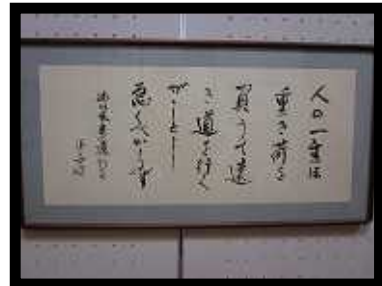 人の一生は
重き荷を
負うて遠
き道を行く
がごとし
急ぐべからず